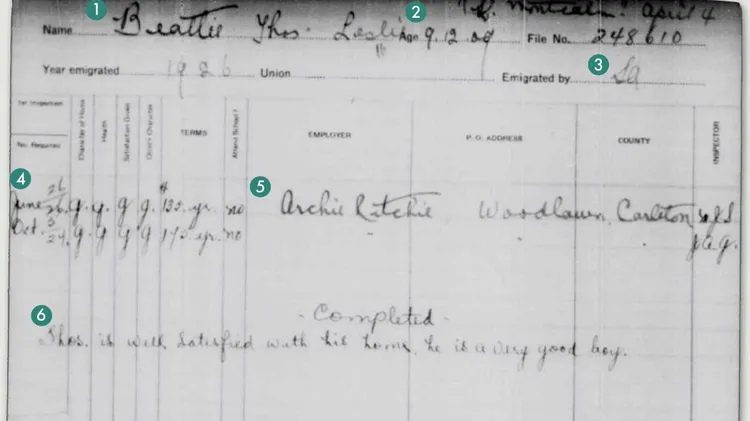 1 2 "Montcalm" April 4
Name Beattie Thos. Leslie Age 9.12.09 File No. 248610
3
Year emigrated 1926 Union Emigrated by SA
1st Inspection
No. Required Character of Home Health Satisfaction Given Child's Character TERMS Attend School? EMPLOYER P. O. ADDRESS COUNTY INSPECTOR
4 5
June 26/26. g. g. g g. $135. yr. no Archie Ritchie Woodlawn, Carleton
Oct. g. g g g 175. yr. no " " J.A.G.
- Completed -
6
Thos. is well satisfied with his home, he is a very good boy.